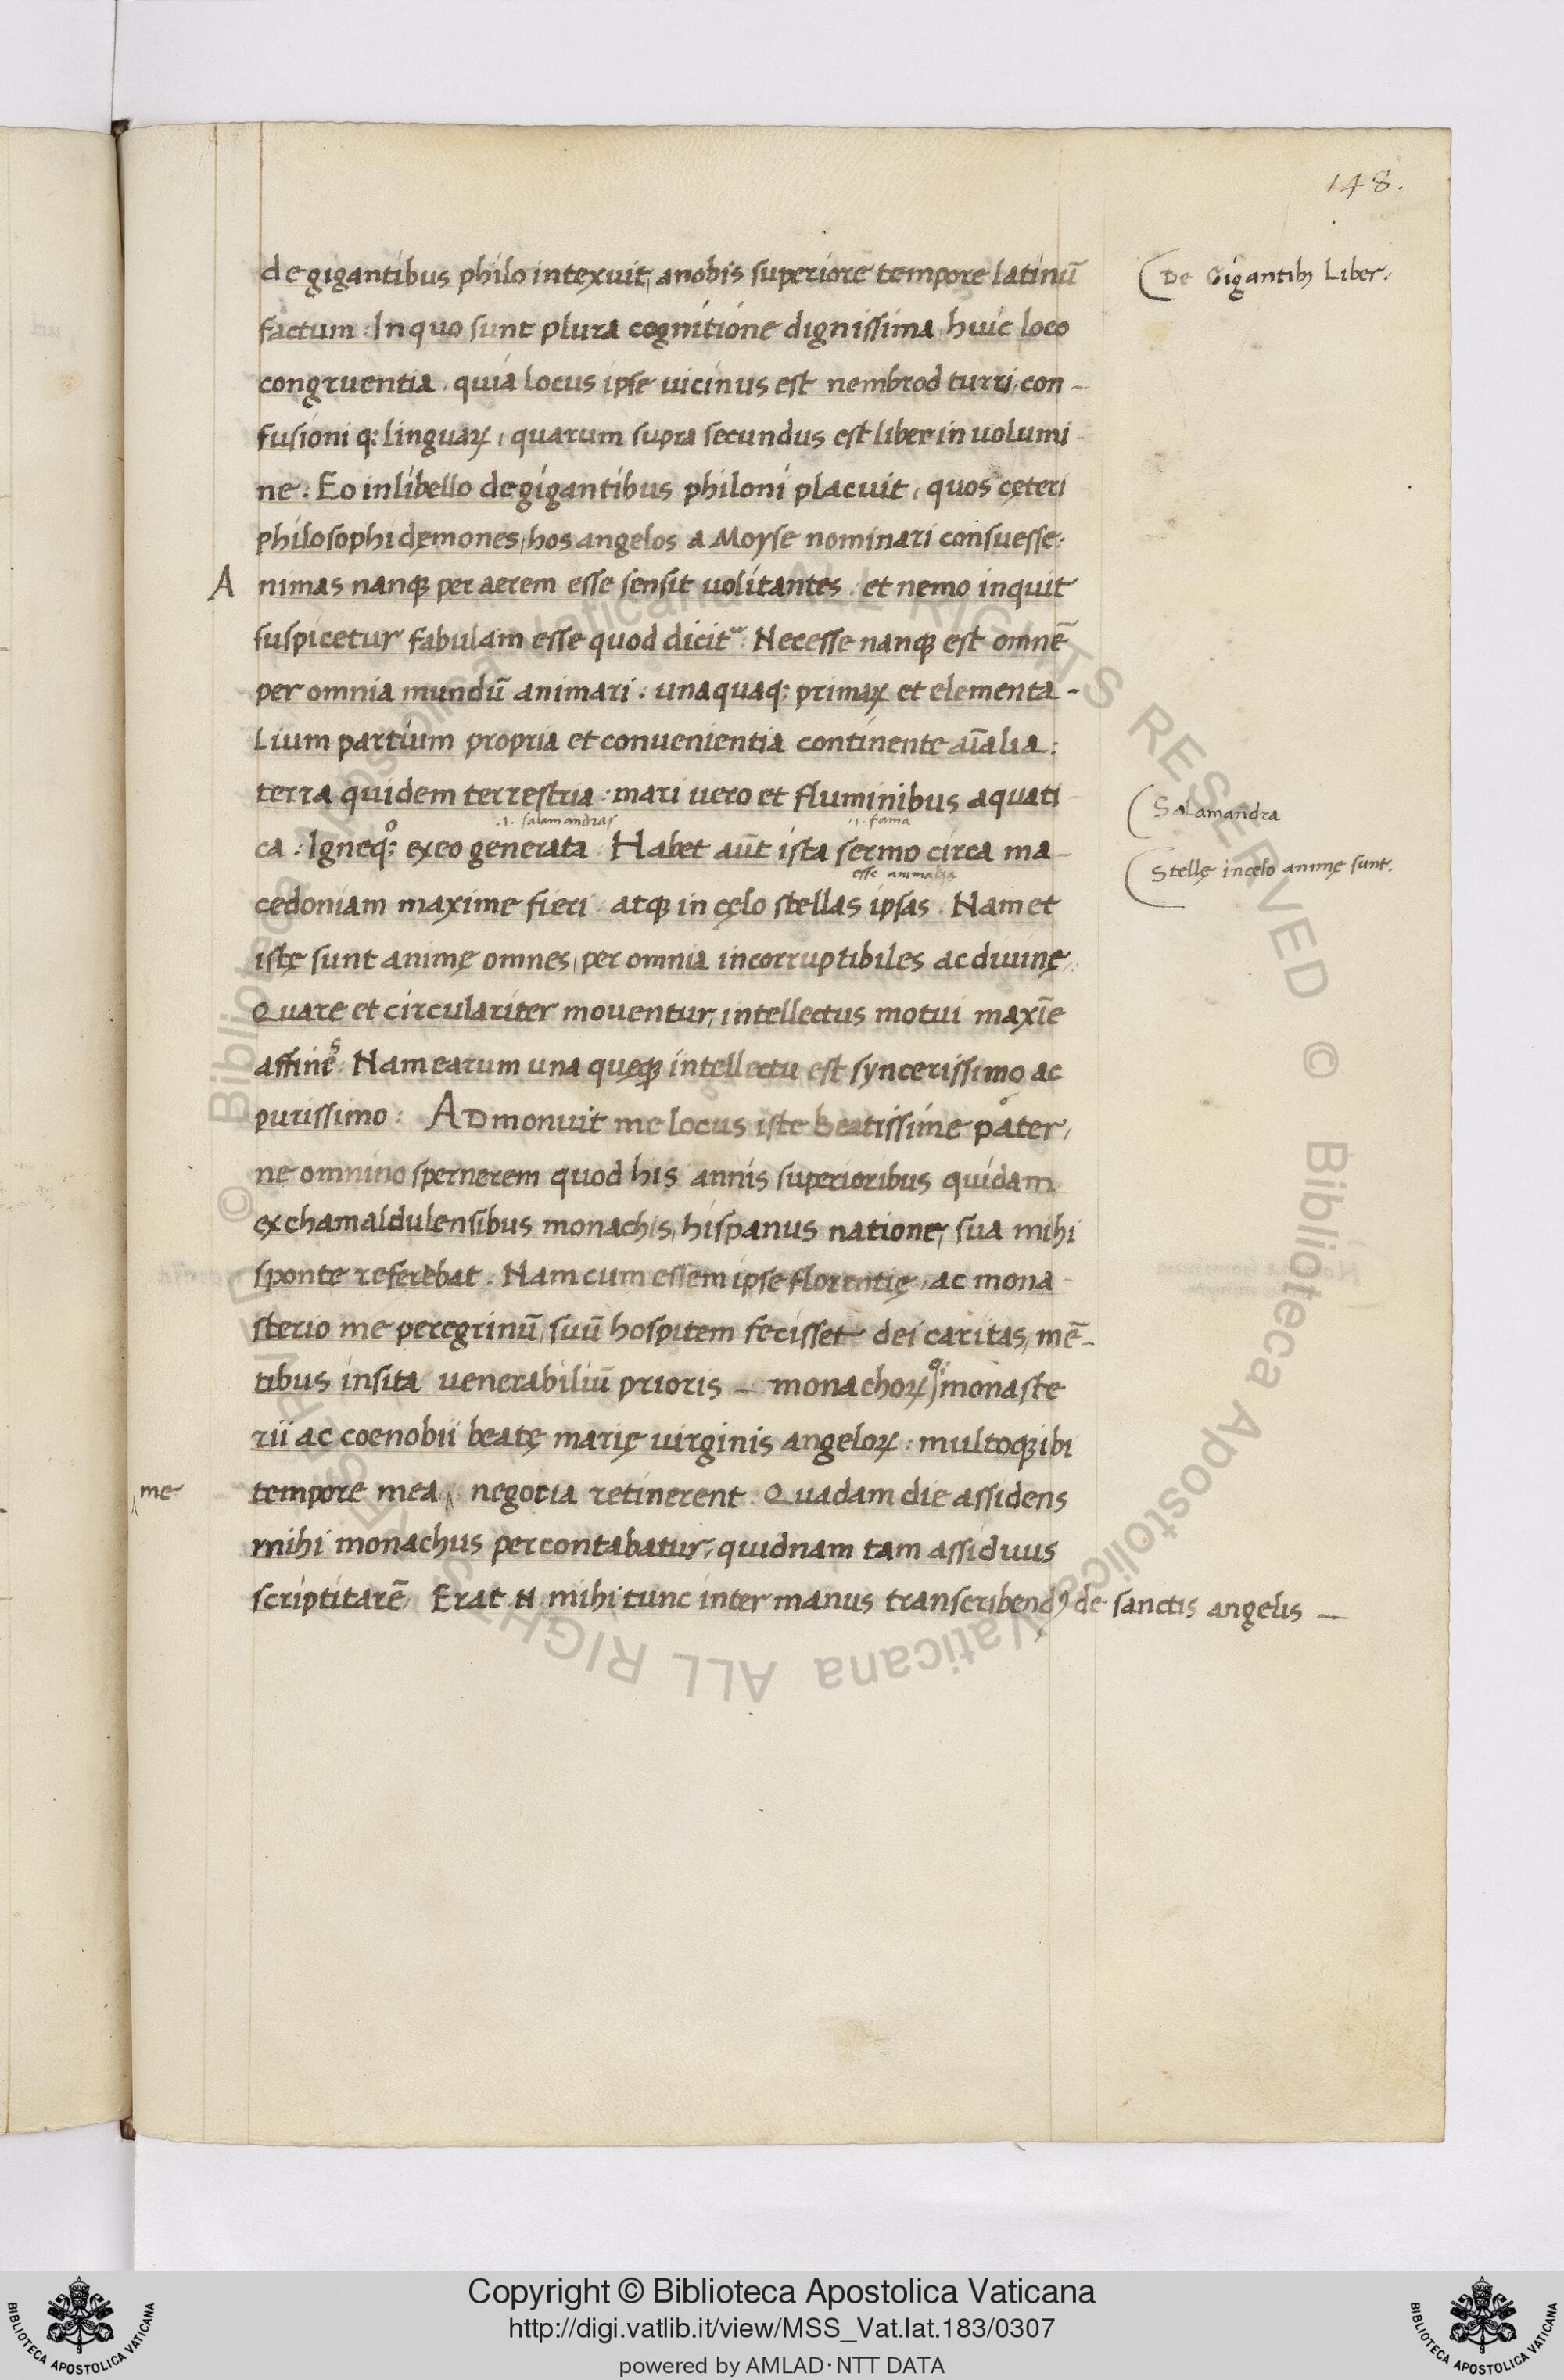 148.
de gigantibus philo intexuit, a nobis superiore tempore latinū
factum. In quo sunt plura cognitione dignissima, huic loco
congruentia, quia locus ipse uicinus est nembrod turri, con-
fusioniq; linguaꝝ, quarum supra secundus est liber in uolumi-
ne. Eo in libello de gigantibus philoni placuit, quos cęteri
philosophi dęmones, hos angelos a Moyse nominari consuesse:
Animas nanqꝫ per aerem esse sensit uolitantes. et nemo inquit
suspicetur fabulam esse quod dicit~. Necesse nanqꝫ est omnē
per omnia mundū animari. unaquaq; primaꝝ et elementa-
lium partium propria et conuenientia continente aīalia:
terra quidem terrestria: mari uero et fluminibus aquati-
.i. salamandras .i. fama
ca. Igneq;° ex eo generata. Habet aūt ista sermo circa ma-
esse animalia
cedoniam maxime fieri. atqꝫ in cęlo stellas ipsas. Nam et
istę sunt animę omnes, per omnia incorruptibiles ac diuinę.
Quare et circulariter mouentur, intellectus motui maxīe
affines. Nam earum una quęqꝫ intellectu est syncerissimo ac
purissimo. ADmonuit me locus iste beatissime pater,
ne omnino spernerem quod his annis superioribus quidam
ex chamaldulensibus monachis, hispanus natione, sua mihi
sponte referebat. Nam cum essem ipse florentię, ac mona-
sterio me peregrinū, suū hospitem fecisset dei caritas, mē-
tibus insita uenerabiliū prioris — monachoꝝq; monaste
rii ac coenobii beatę marię uirginis angeloꝝ: multoqꝫ ibi
tempore mea negotia retinerent. Quadam die assidens
mihi monachus percontabatur, quidnam tam assiduus
scriptitarē. Erat N mihi tunc inter manus transcribendꝰ de sanctis angelis —
me
De Gigantibꝫ Liber.
Salamandra
Stellę in cęlo animę sunt.
© Biblioteca Apostolica Vaticana ALL RIGHTS RESERVED © Biblioteca Apostolica Vaticana ALL RIGHTS RESERVED
Copyright © Biblioteca Apostolica Vaticana
http://digi.vatlib.it/view/MSS_Vat.lat.183/0307
powered by AMLAD·NTT DATA
BIBLIOTECA APOSTOLICA VATICANA
BIBLIOTECA APOSTOLICA VATICANA